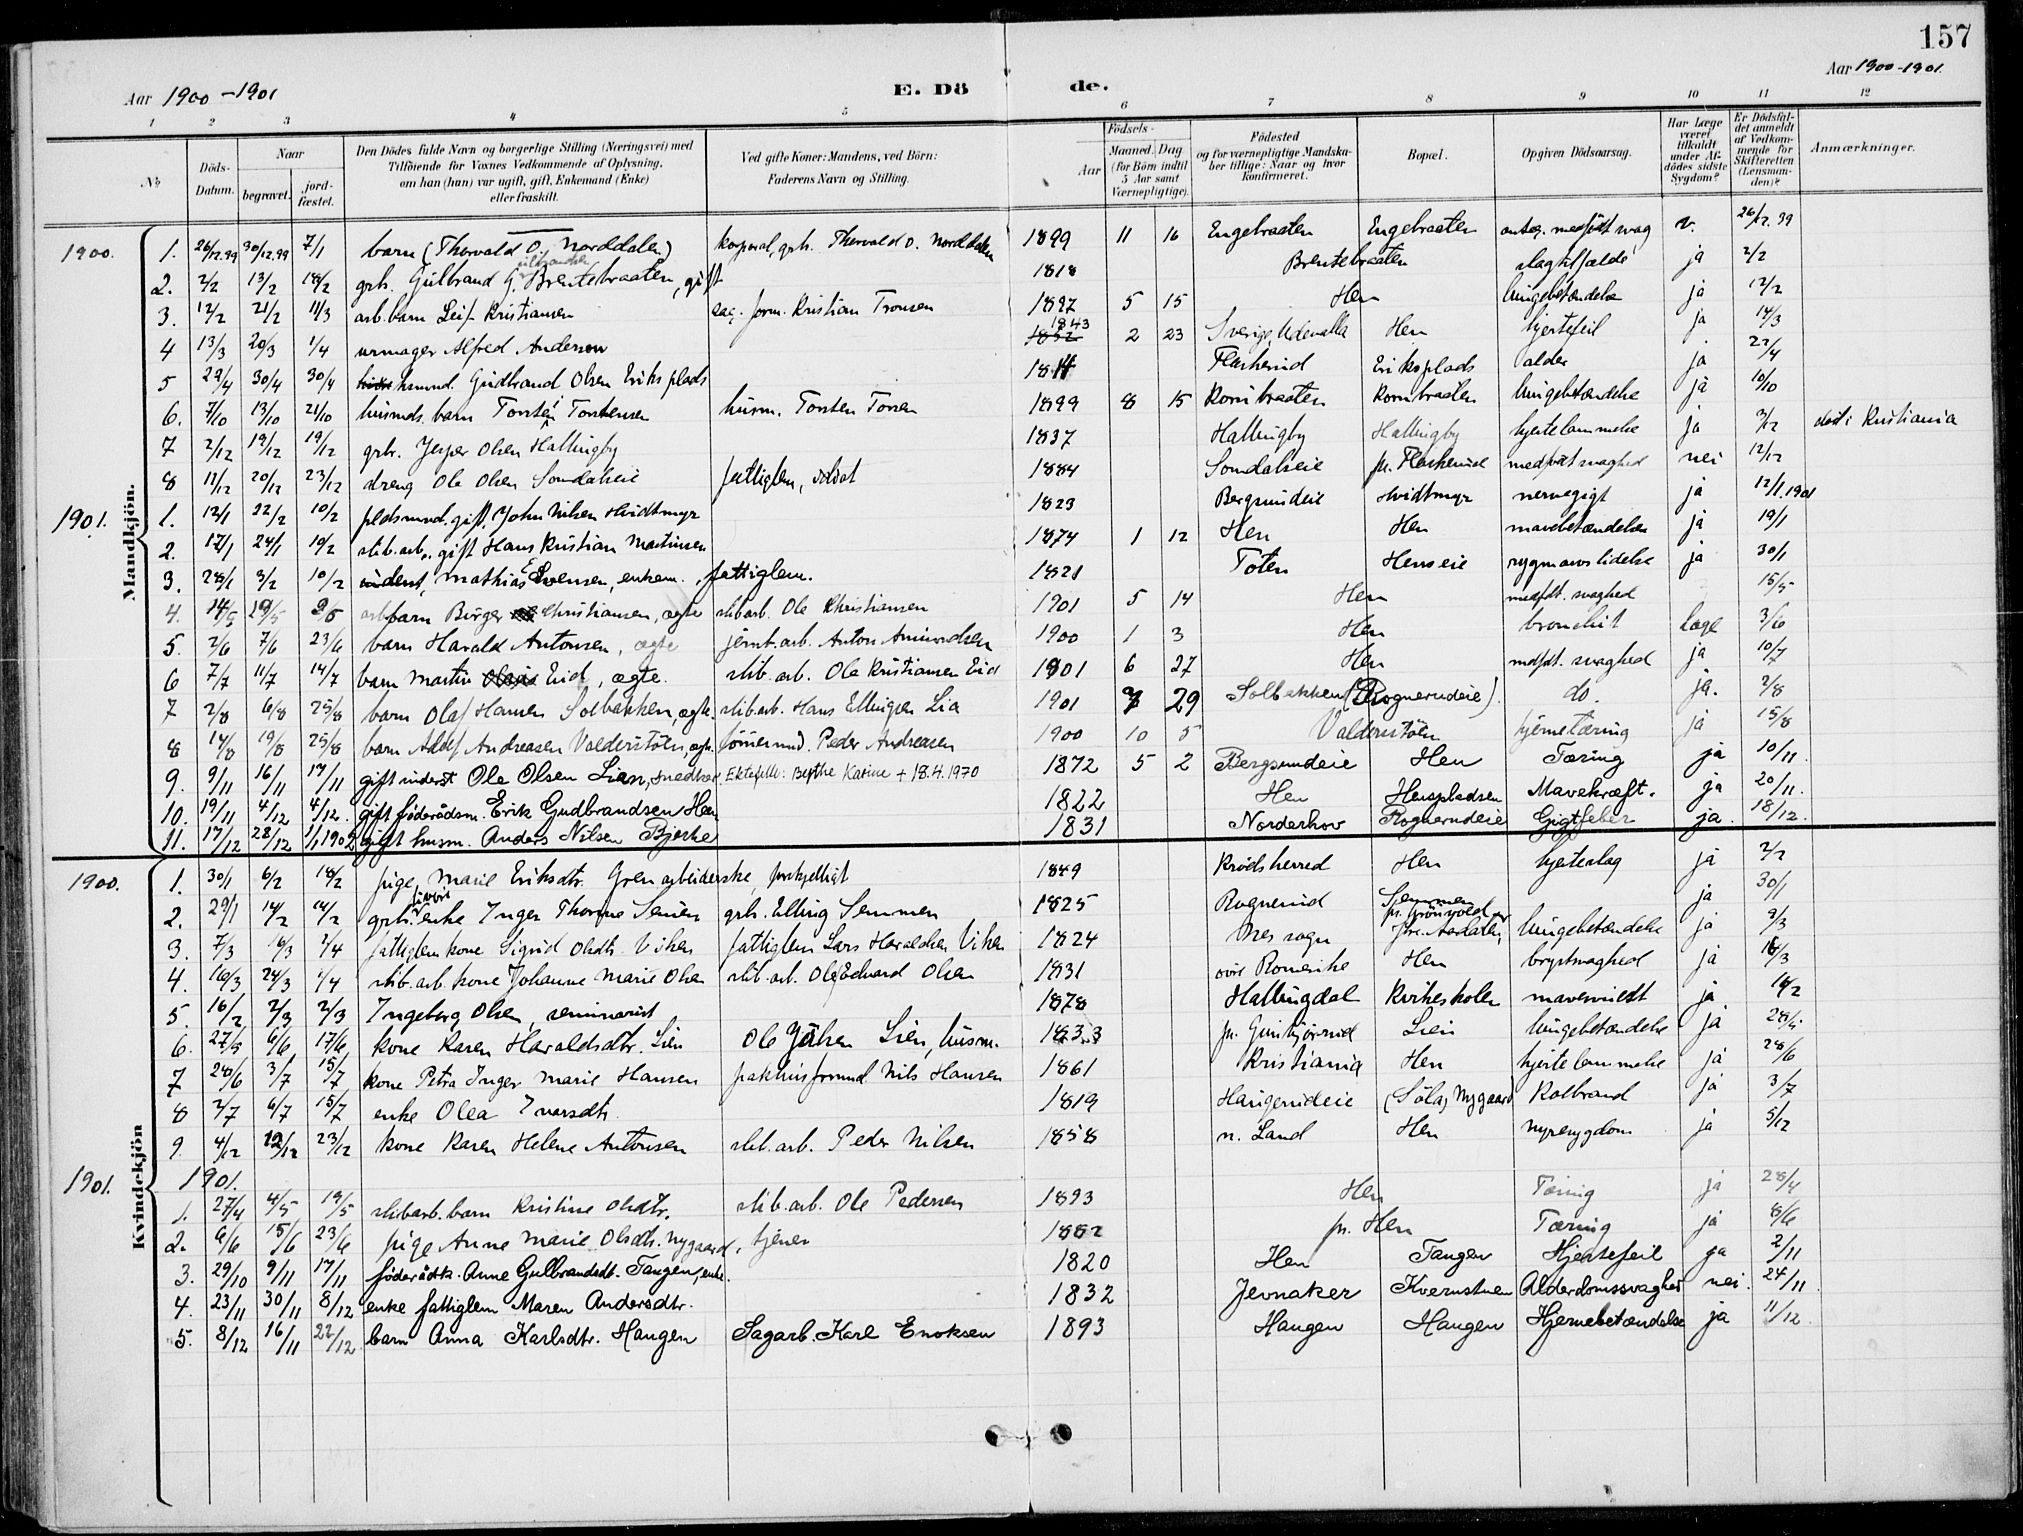 157
Aar 1900-1901
E. Dö de.
Aar 1900-1901.
1 2 3 4 5 6 7 8 9 10 11 12
No. Döds-Datum. Naar begravet. jord-fæstet. Den Dödes fulde Navn og borgerlige Stilling (Næringsvei) med Tilföiende for Voxnes Vedkommende af Oplysning, om han (hun) var ugift, gift, Enkemand (Enke) eller fraskilt. Ved gifte Koner: Mandens, ved Börn: Faderens Navn og Stilling. Födsels- Aar Maaned. Dag (for Börn indtil 5 Aar samt Værnepligtige). Födested og for værnepligtige Mandskaber tillige: Naar og hvor konfirmeret. Bopæl. Opgiven Dödsaarsag. Har Læge været tilkaldt under Afdödes sidste Sygdom? Er Dödsfaldet anmeldt af Vedkommende for Skifteretten (Lensmanden)? Anmærkninger.
Mandkjön.
1900. 1. 26/12.99 30/12.99 7/1 barn (Thorvald O. Norddalen) korporal, grb. Thorvald O. Norddalen 1899 11 16 Engebraaten Engebraaten medfødt svag v. 26/12.99
2. 2/2 13/2 18/2 grb. Gulbrand G. Brentebraaten, gift 1818 Brentebraaten slagtilfælde ja 2/2
3. 12/2 21/2 11/3 arb. barn Leif Kristiansen sag. form. Kristian Tronsen 1897 5 15 Hen lungebetændelse ja 12/2
4 13/3 20/3 1/4 urmager Alfred Anderson 1843 2 23 Sverige, Udevalla Hen hjertefeil ja 14/3
5 22/4 30/4 30/4 husmd. Gudbrand Olsen Eriksplads 1811 Flaskerud Eriksplads alder ja 22/4
6. 7/10 13/10 21/10 husmds. barn Torsten Torstensen husm. Torsten Torsen 1899 8 15 Kornbraaten Kornbraaten lungebetændelse ja 10/10
7 2/12 12/12 19/12 grb. Jesper Olsen Hallingby 1837 Hallingby Hallingby hjertelammelse ja 3/12 död i Kristiania
8 11/12 20/12 23/12 dreng Ole Olsen Somdaleie fattiglem, 1884 Somdaleie pr. Flaskerud medfødt svaghed nei 12/12
1901. 1. 12/1 22/2 10/2 pldsmnd. gift. John Nilsen Hvidtmyr 1823 Bergsundeie Hvidtmyr nervegigt ja 12/1.1901
2. 17/1 24/1 19/2 slib. arb., gift Hans Kristian Martinsen 1874 1 12 Hen Hen mavebetændelse ja 19/1
3. 28/1 3/2 10/2 inderst, Mathias Evensen, enkem. fattiglem. 1821 Toten Henseie rygmarvslidelse ja 30/1
4. 14/5 19/5 9/6 arb barn Birger Christiansen, ægte slib arb. Ole Christiansen 1901 5 14 Hen medfdt. svaghed 15/5
5. 2/6 7/6 23/6 barn Harald Antonsen, ægte jernb. arb. Anton Amundsen 1900 1 3 Hen bronchit læge 3/6
6 7/7 11/7 14/7 barn Martin Eid, ægte. slib. arb. Ole Kristiansen Eid 1901 6 27 Hen mdfdt. svaghed ja 10/7
7 2/8 6/8 25/8 barn Olaf Hansen Solbakken, ægte. slib. arb. Hans Ellingsen Lia 1901 7 29 Solbakken (Rognerudeie) do. ja. 2/8
8 14/8 19/8 25/8 barn Adolf Andreasen Valderstöen, ægte. tömmermd. Peder Andreasen 1900 10 5 Valderstöen hjernetæring ja 15/8
9. 9/11 16/11 17/11 gift inderst Ole Olsen Lien, snedker Ektefelle: Berthe Karine + 18.4.1970 1872 5 2 Bergsundeie Hen Tæring ja 10/11.
10. 19/11 4/12 4/12. gift föderådsm. Erik Gudbrandsen Hen 1822 Hen Henspladsen Mavekræft. ja 20/11.
11. 17/12 28/12 1/1 1902 gift husm. Anders Nilsen Bjerke 1831 Norderhov Rognerudeie Gigtfeber ja. 18/12.
Kvindekjön
1900. 1. 30/1 6/2 18/2 pige, Marie Eriksdtr. Gren arbeiderske, 1849 Krödsherred Hen hjerteslag ja 2/2
2. 29/1 14/2 14/2 grb. enke Inger Thorine Semen grb. Elling Semmen 1825 Rognerud Semmen ja 30/1
3. 7/3 16/3 1/4 fattiglem kone Sigrid Olsdtr. Viken fattiglem Lars Haraldsen Viken 1824 Næs sogn lungebetændelse ja 9/3
4. 16/3 24/3 1/4 slib. arb. kone Johanne Marie Olsen slib. arb. Ole Edvard Olsen 1831 övre Romerike Hen brystsvaghed ja 16/3
5. 16/2 2/3 2/3 Ingeborg Olsen, seminarist 1878 Hallingdal Kvikeskolen mavevridt ja 16/2
6. 27/5 6/6 17/6 kone Karen Haraldsdtr. Lien Ole Johnsen Lien, husm. 1833 pr. Gunbjörnrud Lien lungebetændelse ja 28/5
7 28/6 3/7 15/7 kone Petra Inger Marie Hansen pakhusformnd Nils Hansen 1861 Kristiania Hen hjertelammelse ja 28/6
8 2/7 6/7 15/7 enke Olea Ivarsdtr. 1819 Haugerudeie (Söla) Nygaard Kolbrand ja 3/7
9. 4/12 12/12 23/12 kone Karen Helene Antonsen slib. arb. Peder Nilsen 1858 n. Land Hen nyresygdom ja 5/12
1901. 1901.
1. 27/4 4/5 19/5 slibarb. barn Kristine Olsdtr. slib. arb. Ole Pedersen 1893 Hen Tæring ja 28/4
2. 6/6 15/6 23/6 pige Anne Marie Olsdtr. Nygaard, tjener 1882 pr. Hen Tæring ja 8/6
3. 29/10 9/11 17/11 föderådsk. Anne Gulbrandsdt. Tangen, enke. 1820 Hen Tangen Hjertefeil ja 2/11
4. 23/11 30/11 8/12 enke fattiglem Maren Andersdtr. 1832 Jevnaker Kvernstuen Alderdomssvaghed nei. 24/11.
5. 8/12 16/11 22/12 barn Anna Karlsdtr. Haugen Sagarb. Karl Enoksen 1893 Haugen Haugen Hjernebetændelse ja 11/12.